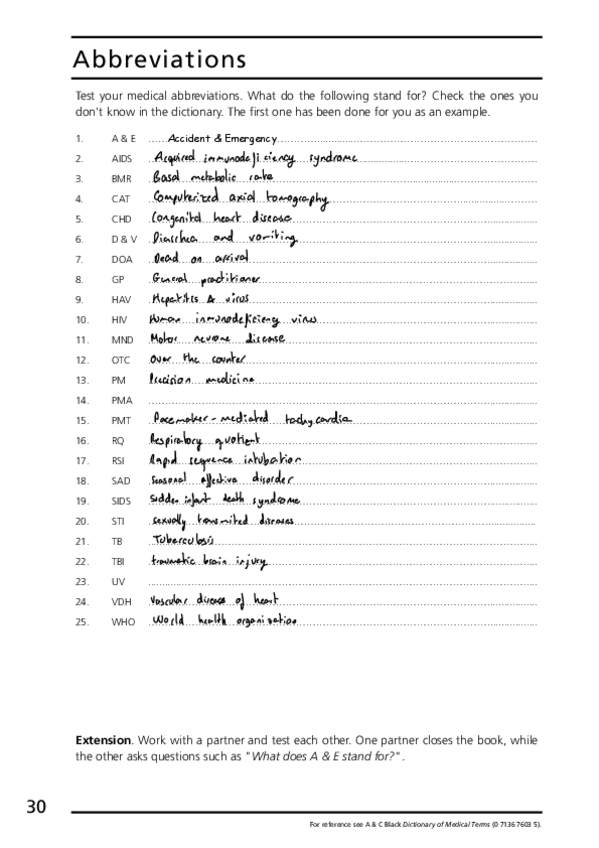 Abbreviations
Test your medical abbreviations. What do the following stand for? Check the ones you
don't know in the dictionary. The first one has been done for you as an example.
1. A & E Accident & Emergency
2. AIDS Acquired immunodeficiency syndrome
3. BMR Basal metabolic rate
4. CAT Computerized axial tomography
5. CHD Congenital heart disease
6. D & V Diarrhea and vomiting
7. DOA Dead on arrival
8. GP General practitioner
9. HAV Hepatitis A virus
10. HIV Human immunodeficiency virus
11. MND Motor neurone disease
12. OTC Over the counter
13. PM Precision medicine
14. PMA
15. PMT Pacemaker-mediated tachycardia
16. RQ Respiratory quotient
17. RSI Rapid sequence intubation
18. SAD Seasonal affective disorder
19. SIDS Sudden infant death syndrome
20. STI sexually transmited diseases
21. TB Tuberculosis
22. TBI traumatic brain injury
23. UV
24. VDH Vascular disease of heart
25. WHO World health organization
Extension. Work with a partner and test each other. One partner closes the book, while
the other asks questions such as "What does A & E stand for?".
30
For reference see A & C Black Dictionary of Medical Terms (0 7136 7603 5).